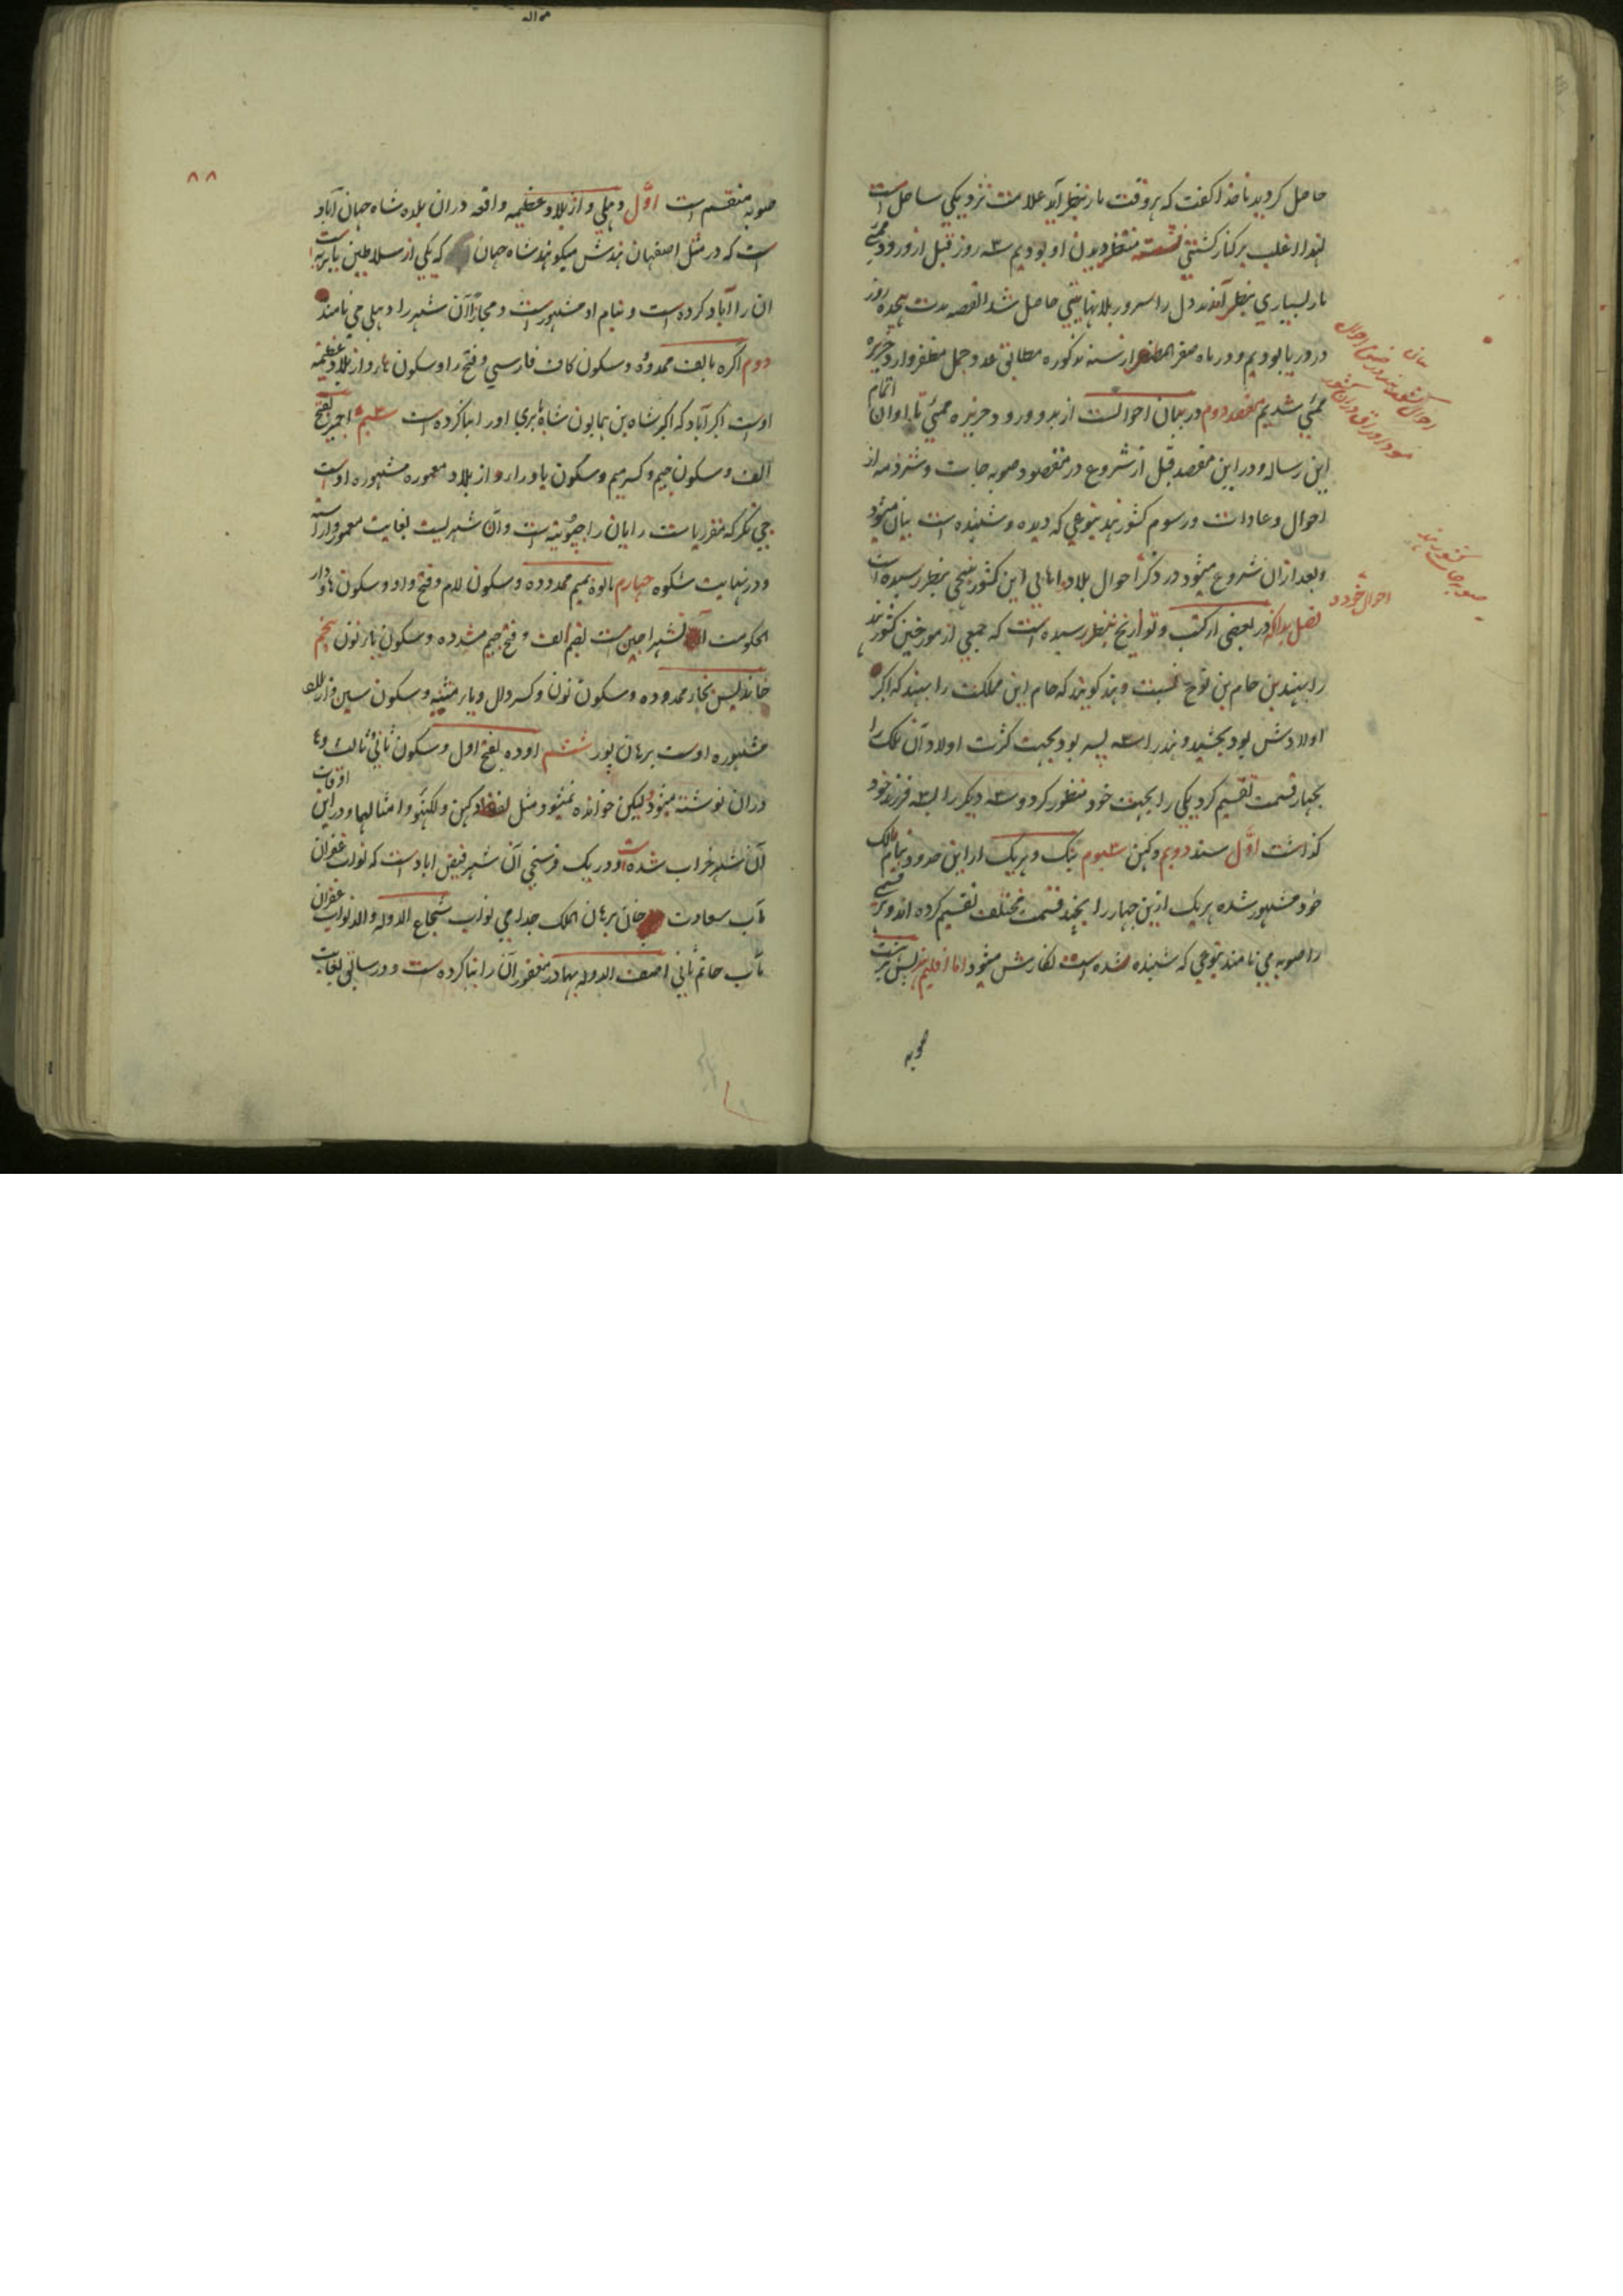 حاصل کردید ناخدا کفت که هر وقت مار بنظر آید علامت نزدیکی ساحل است
لهذا اغلب بر کنار کشتی نشسته منتظر دیدن او بودیم سه روز قبل از ورود ممبئی
مار بسیاری بنظر آمدند دل را سرور بلانهایتی حاصل شد القصه مدت هیجده روز
در دریا بودیم و در ماه صفر المظفر از سنه مذکوره مطابق عدد جمل مظفر وارد جزیره
ممبئی شدیم مقصد دوم در بیان احوالست از بدو ورود جزیره ممبئی تا اوان اتمام
این رساله و در این مقصد قبل از شروع در مقصود صوبه جات و شرذمه از
احوال و عادات و رسوم کشور هند بنوعی که دیده و شنیده است بیان میشود
و بعد ازان شروع میشود در ذکر احوال بلاد و اهالی این کشور بنهجی بنظر رسیده است
احوال خود
فصل بدانکه در بعضی از کتب و تواریخ بنظر رسیده است که جمعی از مورخین کشور هند
را بهند بن حام بن نوح نسبت دهند کویند که حام این مملکت را بهند که اکبر
اولادش بود بخشید و هند را سه پسر بود بجهت کثرت اولاد آن ملک را
بچهار قسمت تقسیم کرد یکی را بجهت خود منظور کرد و سه دیکر را بسه فرزند خود
کذاشت اوّل سند دویم دکهن سیوم بنک و هریک از این حدود بنام مالک
خود مشهور شده هر یک ازین چهار را بچند قسمت مختلف تقسیم کرده اند و هر قسمی
را صوبه می نامند بنوعی که شنیده شده است نکارش میشود اما اقلیم هند پس بر بیست
صوبه
۸۸
صوبه منقسم است اوّل دهلی و از بلاد عظیمه واقعه دران بلده شاه جهان آباد
است که در مثل اصفهان هندش میکویند شاه جهان که یکی از سلاطین بابریه است
ان را آباد کرده است و بنام او مشهور است و مجازاً آن شهر را دهلی می نامند
دوم اکره بالف ممدوده و سکون کاف فارسی و فتح را و سکون ها و از بلاد عظیمه
اوست اکبرآباد که اکبر شاه بن همایون شاه بابری او را بنا کرده است سیم اجمیر بفتح
الف و سکون جیم و کسر میم و سکون یا و را و از بلاد معموره مشهوره اوست
جی نکر که مقر ریاست رایان راجپوتیه است و آن شهریست بغایت معمور و آراسته
و در نهایت شکوه چهارم مالوه بمیم ممدوده و سکون لام و فتح واو و سکون ها و دار
الحکومت آن شهر اجین است بضم الف و فتح جیم مشدده و سکون یا و نون پنجم
خاندیس بخاء ممدوده و سکون نون و کسر دال و یاء مثنیه و سکون سین و از بلاد
مشهوره اوست برهان پور ششم اوده بفتح اول و سکون ثانی و ثالث و ها
دران نوشته میشود لیکن خوانده نمیشود مثل لفظ دکهن و لکهنو و امثالها و در این اوقات
آن شهر خراب شده است و در یک فرسخی آن شهر فیض اباد است که نواب غفران
مآب سعادت خان برهان الملک جد امی نواب شجاع الدوله و الد نواب غفران
مآب حاتم ثانی اصف الدوله بهادر مغفور آن را بنا کرده است و در سالی بغایت